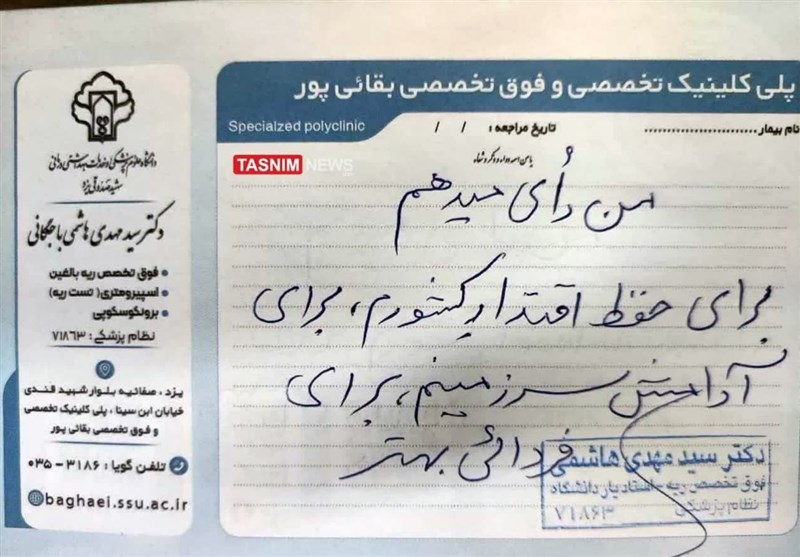 پلی کلینیک تخصصی و فوق تخصصی بقائی پور
Specialzed polyclinic
تاریخ مراجعه : / /
نام بیمار ........................
TASNIM NEWS
من رأی میدهم
برای حفظ اقتدار کشورم، برای
آرامش سرزمینم، برای
فردائی بهتر
دکتر سید مهدی هاشمی
فوق تخصص ریه - استادیار دانشگاه
نظام پزشکی
۷۱۸۶۳
دانشگاه علوم پزشکی و خدمات بهداشتی درمانی
شهید صدوقی یزد
دکتر سید مهدی هاشمی باجگانی
فوق تخصص ریه بالغین
اسپیرومتری( تست ریه)
برونکوسکوپی
نظام پزشکی: ۷۱۸۶۳
یزد ، صفائیه بلوار شهید قندی
خیابان ابن سینا ، پلی کلینیک تخصصی
و فوق تخصصی بقائی پور
تلفن گویا : ۳۱۸۶ - ۰۳۵
baghaei.ssu.ac.ir